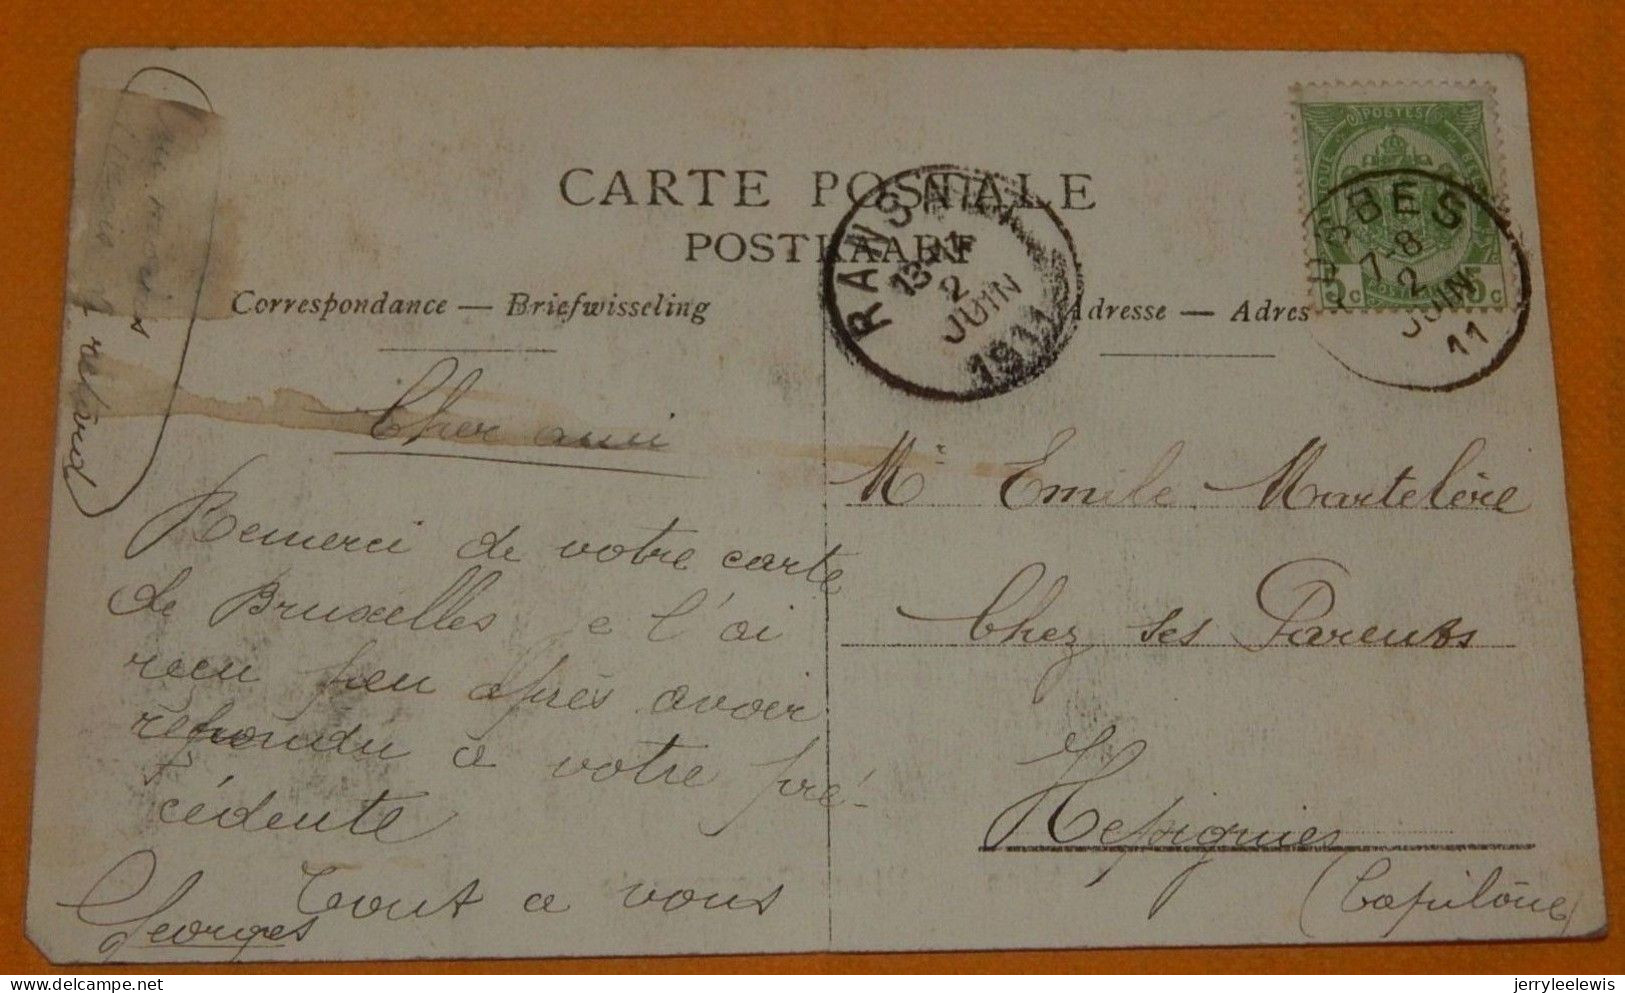 CARTE POSTALE
POSTKAART
Correspondance — Briefwisseling
Adresse — Adres
POSTES
5 c
5 c
BES
7-8
2
JUIN
11
RANSART
13-14
2
JUIN
1911
retard
Cher ami
Remerci de votre carte
de Bruxelles je l'ai
reçu peu après avoir
répondu a votre pré-
cédente
Tout a vous
Georges
Mr Emile Martelère
Chez ses Parents
Hepignies
(Capilône)
delcampe.net
jerryleelewis